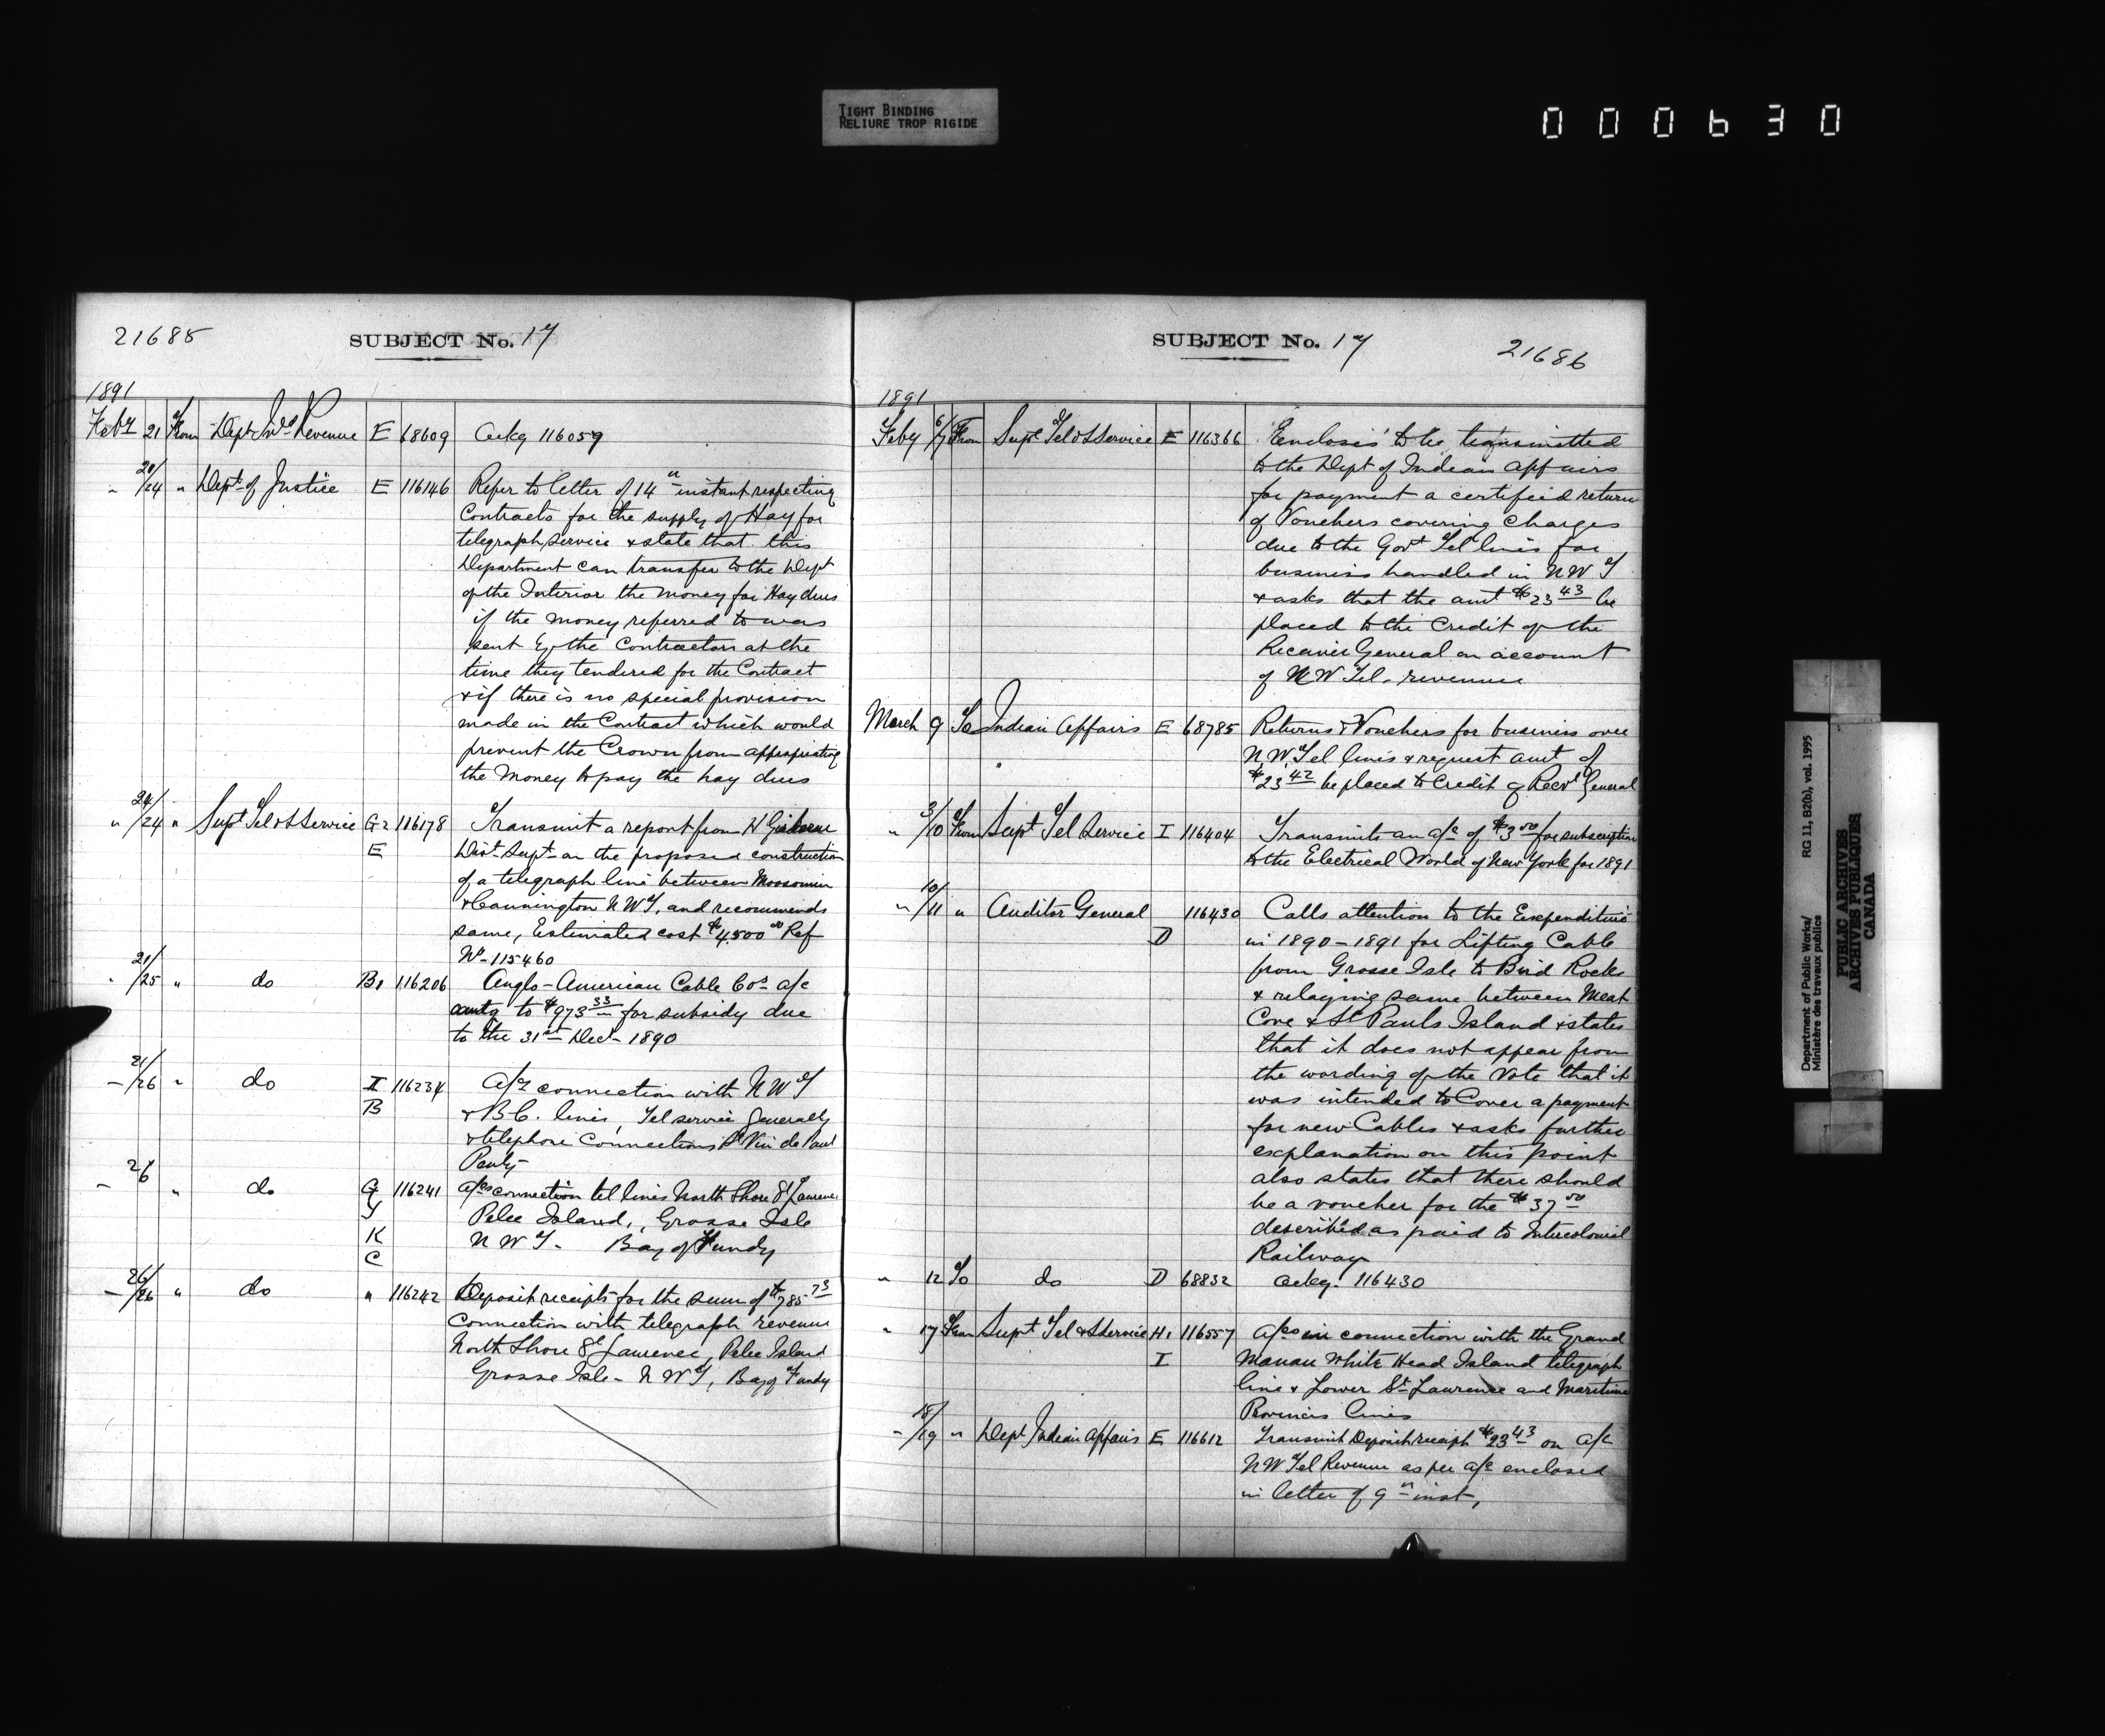 TIGHT BINDING
RELIURE TROP RIGIDE
000630
21685
SUBJECT No. 17
1891
Feby 21 From Dept Ind Revenue E 68609 Ackg 116059
" 20/24 " Dept of Justice E 116146 Refer to letter of 14th instant respecting
Contracts for the supply of Hay for
telegraph service & state that this
Department can transfer to the Dept
of the Interior the money for Hay dues
if the money referred to was
sent by the Contractors at the
time they tendered for the Contract
& if there is no special provision
made in the Contract which would
prevent the Crown from appropriating
the money to pay the hay dues
" 24/24 " Supt Tel & S Service G2 116178 Transmit a report from H Gisborne
E Dist Supt on the proposed construction
of a telegraph line between Moosomin
& Cannington N W T, and recommends
same, Estimated cost $4,500 00 Ref
No 115460
" 21/25 " do B1 116206 Anglo-American Cable Cos a/c
amtg to $973 33 for subsidy due
to the 31st Dec 1890
" 21/26 " do I 116234 A/cs connection with N W T
B & B.C. lines, Tel service generally
& telephone connections St Vin de Paul
Penty
" 26 " do G 116241 A/cs connection tel lines North Shore St Laurence
Y Pelee Island, Grosse Isle
K N W T - Bay of Fundy
C
" 26/26 " do " 116242 Deposit receipts for the sum of $785 73
Connection with telegraph revenue
North Shore St Laurence, Pelee Island
Grosse Isle - N W T, Bay of Fundy
SUBJECT No. 17
21686
1891
Feby 6/7 From Supt Tel & S Service E 116366 Encloses to be transmitted
to the Dept of Indian Affairs
for payment a certified return
of Vouchers covering charges
due to the Govt Tel lines for
business handled in N W T
& asks that the amt $23 43 be
placed to the Credit of the
Receiver General on account
of N W Tel. revenue
March 9 To Indian Affairs E 68785 Returns & Vouchers for business over
N.W. Tel lines & request amt of
$23 42 be placed to Credit of Recr General
" 3/10 From Supt Tel Service I 116404 Transmits an a/c of $3 00 for subscription
to the Electrical World of New York for 1891
" 10/11 " Auditor General 116430 Calls attention to the Expenditure
D in 1890-1891 for Lifting Cable
from Grosse Isle to Bird Rocks
& relaying same between Meat
Cove & St Pauls Island & states
that it does not appear from
the wording of the Vote that it
was intended to Cover a payment
for new Cables & asks further
explanation on this point
also states that there should
be a voucher for the $37 50
described as paid to Intercolonial
Railway
" 12 To do D 68832 Ackg. 116430
" 17 From Supt Tel & S Service H1 116557 A/cs in connection with the Grand
I Manan White Head Island telegraph
line & Lower St Laurence and Maritime
Provinces lines
" 18/19 " Dept Indian Affairs E 116612 Transmit Deposit receipt $23 43 on a/c
N W Tel Revenue as per a/c enclosed
in letter of 9th inst,
Department of Public Works/
Ministère des travaux publics
RG 11, B2(b), vol. 1995
PUBLIC ARCHIVES
ARCHIVES PUBLIQUES
CANADA